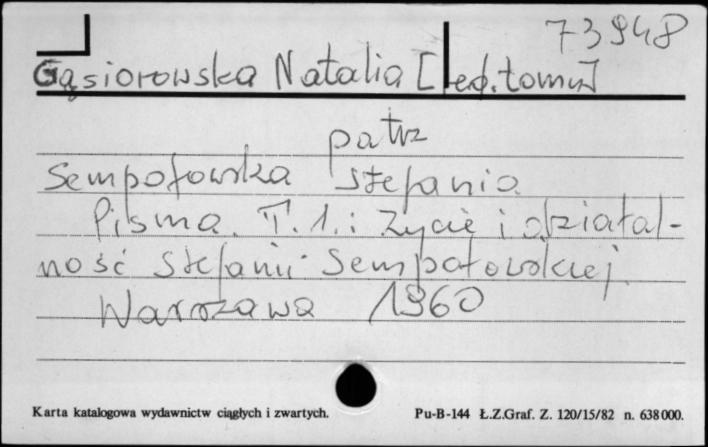 73948
Gąsiorowska Natalia [red. tomu]
patrz
Sempołowska Stefania
Pisma. T. 1.: Życie i działal-
ność Stefanii Sempołowskiej.
Warszawa 1960
Karta katalogowa wydawnictw ciągłych i zwartych. Pu-B-144 Ł.Z.Graf. Z. 120/15/82 n. 638000.